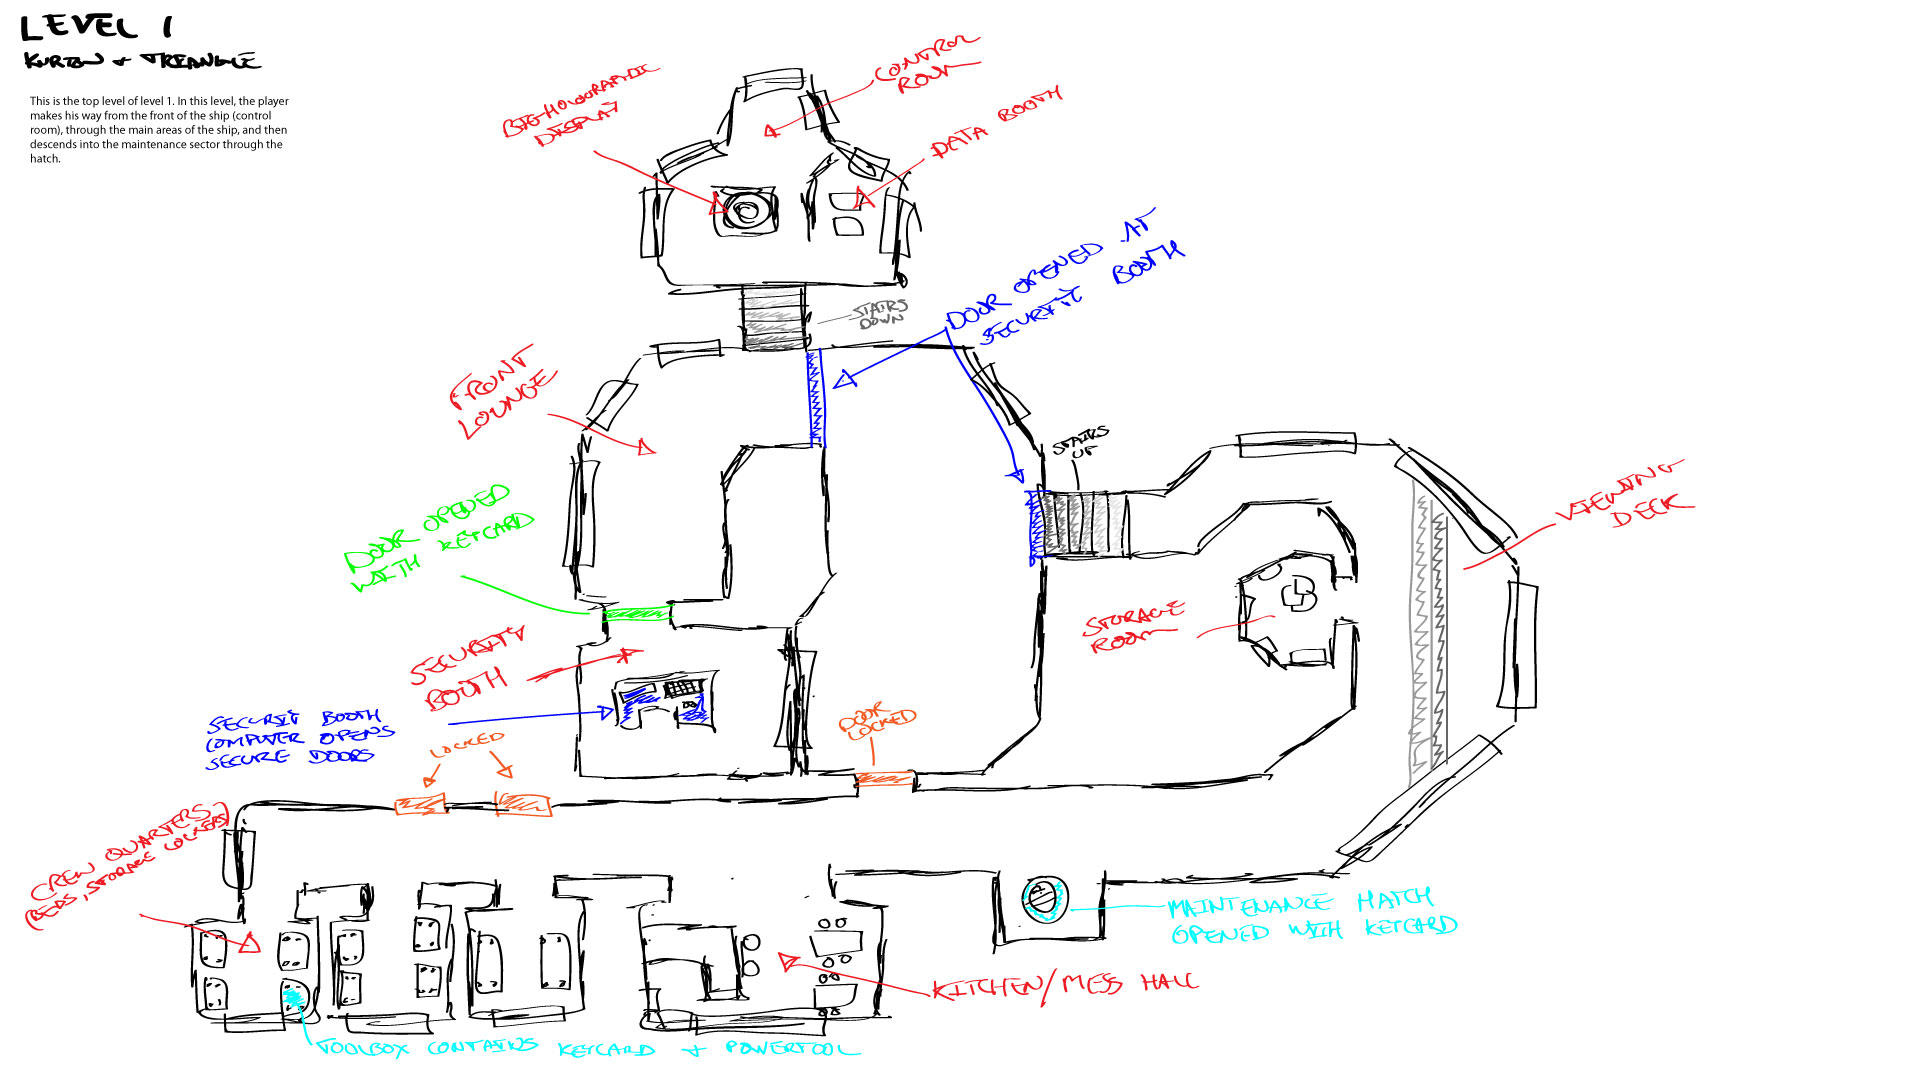 LEVEL 1
KURTON + TRIANGLE
This is the top level of level 1. In this level, the player
makes his way from the front of the ship (control
room), through the main areas of the ship, and then
descends into the maintenance sector through the
hatch.
BIG HOLOGRAPHIC
DISPLAY
CONTROL
ROOM
DATA BOOTH
STAIRS
DOWN
DOOR OPENED AT
SECURITY BOOTH
FRONT
LOUNGE
STAIRS
UP
VIEWING
DECK
DOOR OPENED
WITH KEYCARD
STORAGE
ROOM
SECURITY
BOOTH
SECURIT BOOTH
COMPUTER OPENS
SECURE DOORS
LOCKED
DOOR
LOCKED
CREW QUARTERS
(BEDS, STORAGE LOCKERS)
MAINTENANCE HATCH
OPENED WITH KEYCARD
KITCHEN/MESS HALL
TOOLBOX CONTAINS KEYCARD + POWERTOOL